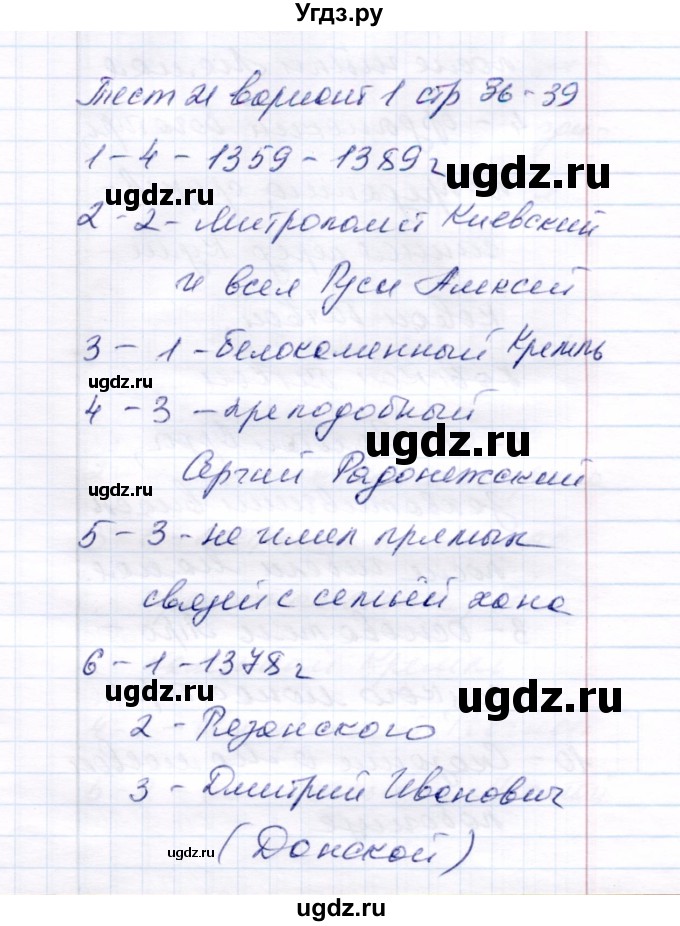 Угдз.ру
Тест 21 вариант 1 стр 36-39
1 - 4 - 1359 - 1389 г
ugdz.ru
ugdz.ru
2 - 2 - Митрополит Киевский
и всея Руси Алексей
ugdz.ru
3 - 1 - белокаменный Кремль
ugdz.ru
4 - 3 - преподобный
ugdz.ru
Сергий Радонежский
ugdz.ru
5 - 3 - не имел прямых
связей с семьёй хана
6 - 1 - 1378 г
ugdz.ru
ugdz.ru
2 - Рязанского
3 - Дмитрий Иванович
(Донской)
ugdz.ru
ugdz.ru